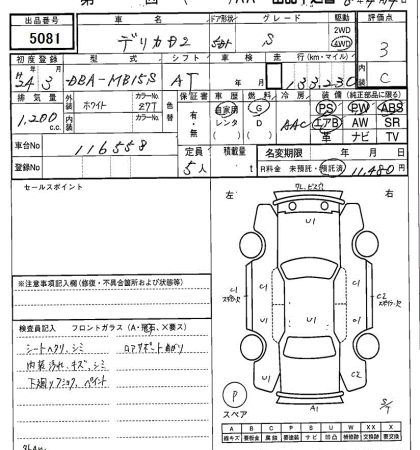 出品番号 車名 ドア形状 グレード 駆動 評価点
5081 デリカD2 5ドア S 2WD 4WD 3
初度登録 型式 シフト 車検 走行(km・マイル) 内装 C
H24 3 DBA-MB15S AT 年 月 133,230
排気量 外装 ホワイト カラーNo. 27T 色替 保証書 車歴 燃料 冷房 装備(純正部品に限る)
1,200 c.c. 内装 カラーNo. 有・無 自家用 レンタ G D AAC PS PW ABS
エアB AW SR
革 ナビ TV
車台No. 116558 定員 積載量 名変期限 年 月 日
登録No. 5人 t R料金 未預託・預託済 11,480円
セールスポイント
左 右
U1
C1 C1 U1 C2
U1 U1 C2
※注意事項記入欄(修復・不具合箇所および状態等)
検査員記入 フロントガラス(A・飛石、×要ス)
シートヘタリ、シミ ロアサポート曲がり
内装汚れ、キズ、シミ
下廻り ペイント
P
スペア
A1
A B C P S U W X XX
線キズ 要板金 腐蝕 要塗装 サビ 凹凸 補修跡 要交換